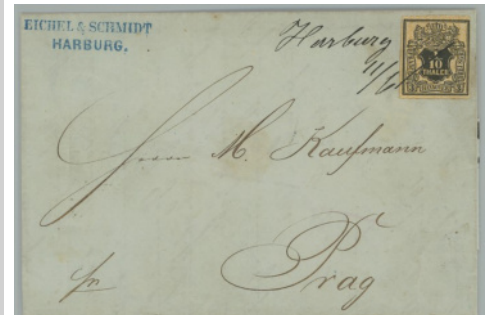 EICHEL & SCHMIDT
HARBURG.
Harburg
11/6
1
10
THALER
Herrn M. Kaufmann
Prag
fr